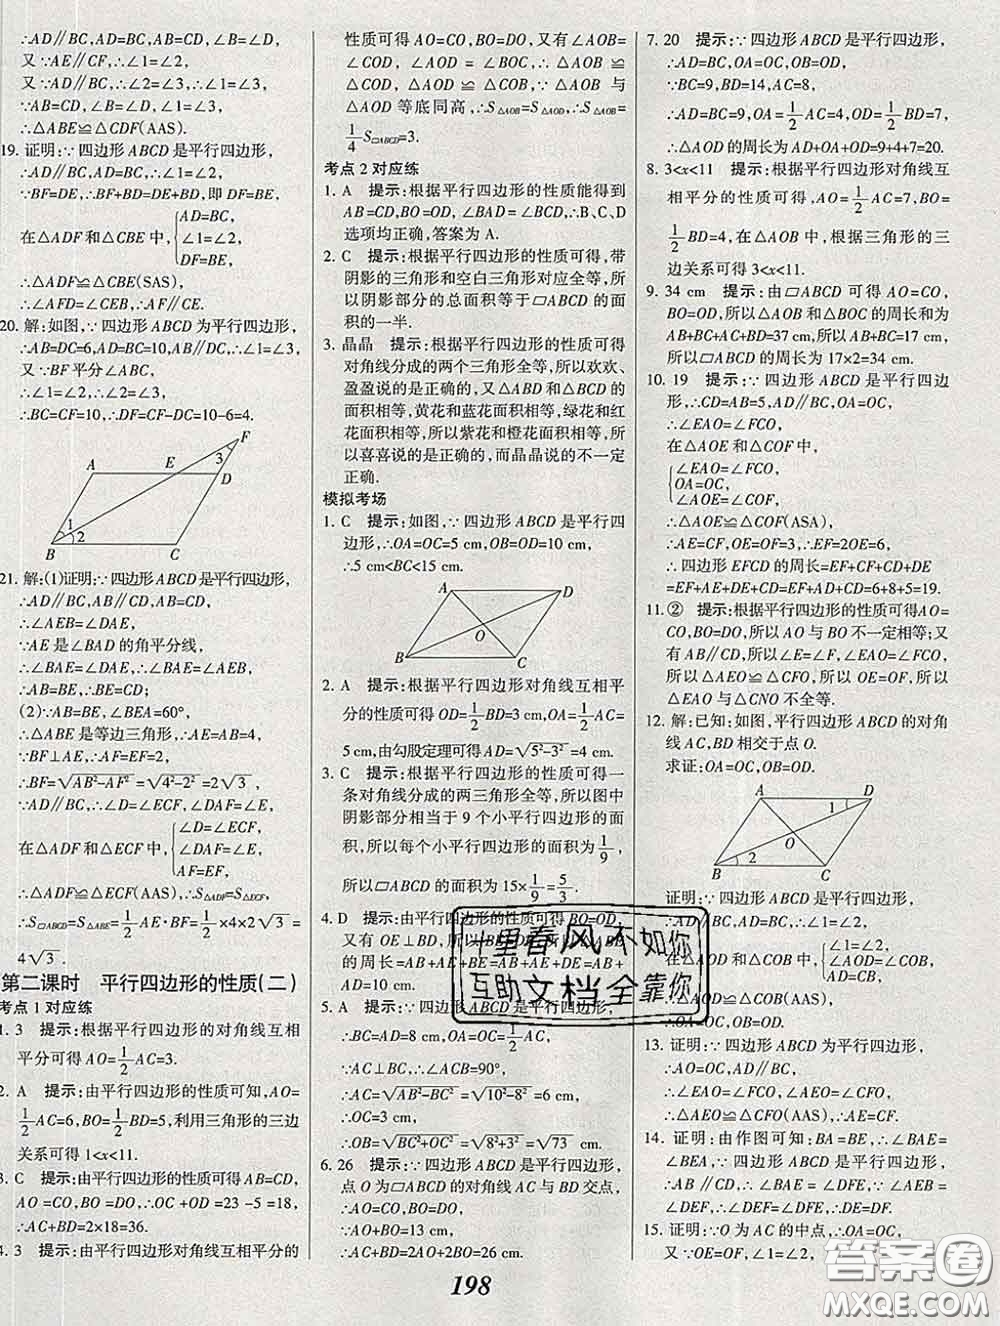 ∴AD∥BC,AD=BC,∠B=∠D,
又∵AE∥CF,∴∠1=∠2,
又∵AD∥BC,∴∠1=∠3,∴∠2=∠3,
又∵AB=CD,∠B=∠D,
∴△ABE≌△CDF(AAS).
19. 证明:∵四边形ABCD是平行四边形,
∴AD=BC,AD∥BC,∴∠1=∠2,
∵BF=DE,∴BF+BD=DE+BD,即DF=BE,
AD=BC,
在△ADF和△CBE中, ∠1=∠2,
DF=BE,
∴△ADF≌△CBE(SAS).
∴∠AFD=∠CEB,∴AF∥CE.
20. 解:如图,∵四边形ABCD为平行四边形,
∴AB=DC=6,AD=BC=10,AB∥DC,∴∠1=∠3,
又∵BF平分∠ABC,
∴∠1=∠2,∴∠2=∠3,
∴BC=CF=10,∴DF=CF-DC=10-6=4.
F
3
A E D
1
2
B C
21. 解:(1)证明:∵四边形ABCD是平行四边形,
∴AD∥BC,AB∥CD,AB=CD,
∴∠AEB=∠DAE,
∵AE是∠BAD的角平分线,
∴∠BAE=∠DAE,∴∠BAE=∠AEB,
∴AB=BE,∴BE=CD;
(2)∵AB=BE,∠BEA=60°,
∴△ABE是等边三角形,∴AE=AB=4,
∵BF⊥AE,∴AF=EF=2,
∴BF=√(AB²-AF²)=√(4²-2²)=2√3,
∵AD∥BC,∴∠D=∠ECF,∠DAF=∠E,
∠D=∠ECF,
在△ADF和△ECF中, ∠DAF=∠E,
AF=EF,
∴△ADF≌△ECF(AAS),∴S△ADF=S△ECF,
∴S▱ABCD=S△ABE=1/2AE·BF=1/2×4×2√3=
4√3.
第二课时 平行四边形的性质(二)
考点1对应练
1. 3 提示:根据平行四边形的对角线互相
平分可得AO=1/2AC=3.
2. A 提示:由平行四边形的性质可知,AO=
1/2AC=6,BO=1/2BD=5,利用三角形的三边
关系可得1<x<11.
3. C 提示:由平行四边形的性质可得AB=CD,
AO=CO,BO=DO,∴OC+OD=23-5=18,
∴AC+BD=2×18=36.
4. 3 提示:由平行四边形对角线互相平分的
性质可得AO=CO,BO=DO,又有∠AOB=
∠COD,∠AOD=∠BOC,∴△AOB≌
△COD,△AOD≌△COB,∵△AOB与
△AOD等底同高,∴S△AOB=S△AOD,∴S△AOB=
1/4S▱ABCD=3.
考点2对应练
1. A 提示:根据平行四边形的性质能得到
AB=CD,BO=DO,∠BAD=∠BCD,∴B、C、D
选项均正确,答案为A.
2. C 提示:根据平行四边形的性质可得,带
阴影的三角形和空白三角形对应全等,所
以阴影部分的总面积等于▱ABCD的面
积的一半.
3. 晶晶 提示:根据平行四边形的性质可得
对角线分成的两三角形全等,所以欢欢、
盈盈说的是正确的,又△ABD和△BCD的
面积相等,黄花和蓝花面积相等,绿花和红
花面积相等,所以紫花和橙花面积相等,所
以喜喜说的是正确的,而晶晶说的不一定
正确.
模拟考场
1. C 提示:如图,∵四边形ABCD是平行四
边形,∴OA=OC=5 cm,OB=OD=10 cm,
∴5 cm<BC<15 cm.
A D
O
B C
2. A 提示:根据平行四边形对角线互相平
分的性质可得OD=1/2BD=3 cm,OA=1/2AC=
5 cm,由勾股定理可得AD=√(5²-3²)=4 cm.
3. C 提示:根据平行四边形的性质可得一
条对角线分成的两三角形全等,所以图中
阴影部分相当于9个小平行四边形的面
积,所以每个小平行四边形的面积为1/9,
所以▱ABCD的面积为15×1/9=5/3.
4. D 提示:由平行四边形的性质可得BO=OD,
又有OE⊥BD,
的周长=AB+AE+BE=AB+AE+DE=AB+
AD=10 cm.
5. A 提示:∵四边形
∴BC=AD=8 cm,OA=OC=1/2AC,
∵AC⊥BC,∴∠ACB=90°,
∴AC=√(AB²-BC²)=√(10²-8²)=6 cm,
∴OC=3 cm,
∴OB=√(BC²+OC²)=√(8²+3²)=√73 cm.
6. 26 提示:∵四边形ABCD是平行四边形,
点O为▱ABCD的对角线AC与BD交点,
∴AO=CO,BO=DO,
∵AO+BO=13 cm,
∴AC+BD=2AO+2BO=26 cm.
7. 20 提示:∵四边形ABCD是平行四边形,
∴AD=BC,OA=OC,OB=OD,
∵BC=9,BD=14,AC=8,
∴AD=BC=9,OA=1/2AC=4,OD=1/2BD=7,
∴△AOD的周长为AD+OA+OD=9+4+7=20.
8. 3<x<11 提示:根据平行四边形对角线互
相平分的性质可得,AO=1/2AC=7,BO=
1/2BD=4,在△AOB中,根据三角形的三
边关系可得3<x<11.
9. 34 cm 提示:由▱ABCD可得AO=CO,
BO=DO,所以△AOB和△BOC的周长和为
AB+BC+AC+BD=37 cm,所以AB+BC=17 cm,
所以▱ABCD的周长为17×2=34 cm.
10. 19 提示:∵四边形ABCD是平行四边
形,∴CD=AB=5,AD∥BC,OA=OC,
∴∠EAO=∠FCO,
在△AOE和△COF中,
∠EAO=∠FCO,
OA=OC,
∠AOE=∠COF,
∴△AOE≌△COF(ASA),
∴CF=AE,OE=OF=3,∴EF=2OE=6,
∴四边形EFCD的周长=EF+CF+CD+DE
=EF+AE+DE+CD=EF+AD+CD=6+8+5=19.
11. ② 提示:根据平行四边形的性质可得AO=
CO,BO=DO,所以AO与BO不一定相等;又
有AB∥CD,所以∠E=∠F,所以OE=OF,
△EAO与△CNO不全等.
12. 解:已知:如图,平行四边形ABCD的对角
线AC,BD相交于点O.
求证:OA=OC,OB=OD.
A D
1
O
2
B C
证明:∵四边形ABCD是平行四边形,
∴AD∥BC,AD=BC,
∠1=∠2,
∴OA=OC,OB=OD.
13. 证明:∵四边形ABCD为平行四边形,
∴AD∥BC,OA=OC,
∴∠EAO=∠FCO,∠AEO=∠CFO,
∴△AEO≌△CFO(AAS),∴AE=CF.
14. 证明:由作图可知:BA=BE,∴∠BAE=
∠BEA,∵四边形ABCD是平行四边形,
∴AB∥CD,∴∠BAE=∠DFE,∵∠BEA=
∠DEF,∴∠DEF=∠DFE,∴DE=DF.
15. 证明:∵O为AC的中点,∴OA=OC,
又∵OE=OF,∠1=∠2,
十里春风不如你
互助文档全靠你
198
答案圈
MXQE.COM